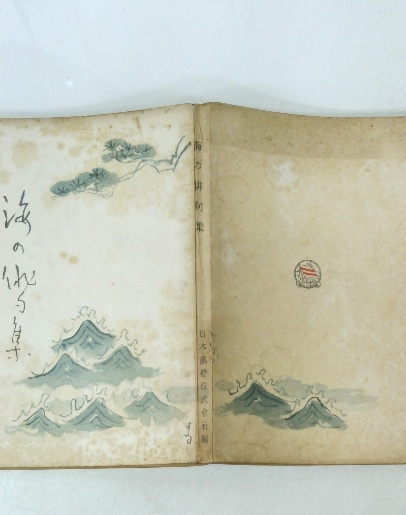 海の俳句集
海の俳句集
日本郵船株式會社編